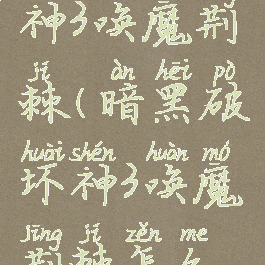 神3唤魔荆
jí àn hēi pò
棘(暗黑破
huài shén huàn mó
坏神3唤魔
jīng jí zěn me
荆棘怎么